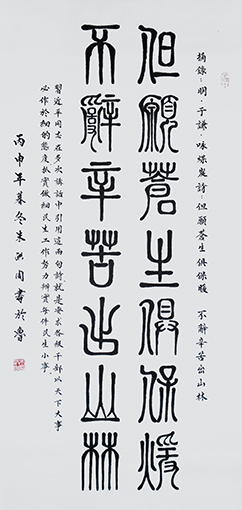 摘錄：明·于謙·咏煤炭詩：但願蒼生俱保暖　不辭辛苦出山林
但願蒼生俱保煖
不辭辛苦出山林
習近平同志在多次講話中引用這兩句詩就是要求各級干部以天下大事
必作於細的態度抓實做細民生工作努力辦實每件民生小事
丙申年暮冬朱 周書於魯